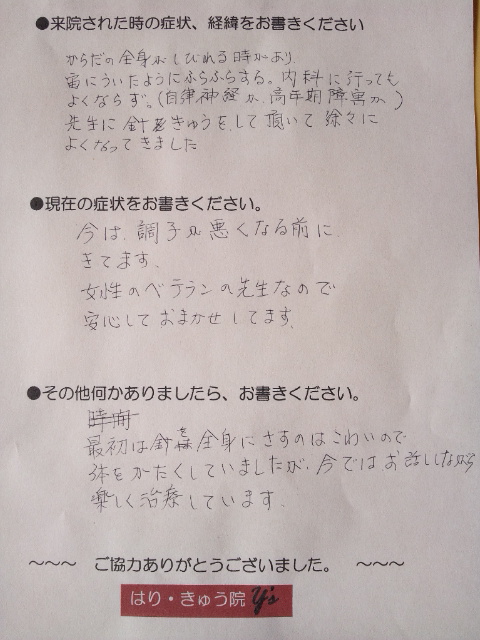 ●来院された時の症状、経緯をお書きください
からだの全身がしびれる時があり、
宙にういたようにふらふらする。内科に行っても
よくならず。(自律神経か、高年期障害か)
先生に針をきゅうを、して頂いて徐々に
よくなってきました
●現在の症状をお書きください。
今は、調子が悪くなる前に
きてます、
女性のベテランの先生なので
安心しておまかせしてます。
●その他何かありましたら、お書きください。
最初は針を全身にさすのはこわいので
体をかたくしていましたが、今ではお話ししながら
楽しく治療しています。
~~~ ご協力ありがとうございました。 ~~~
はり・きゅう院 Y's